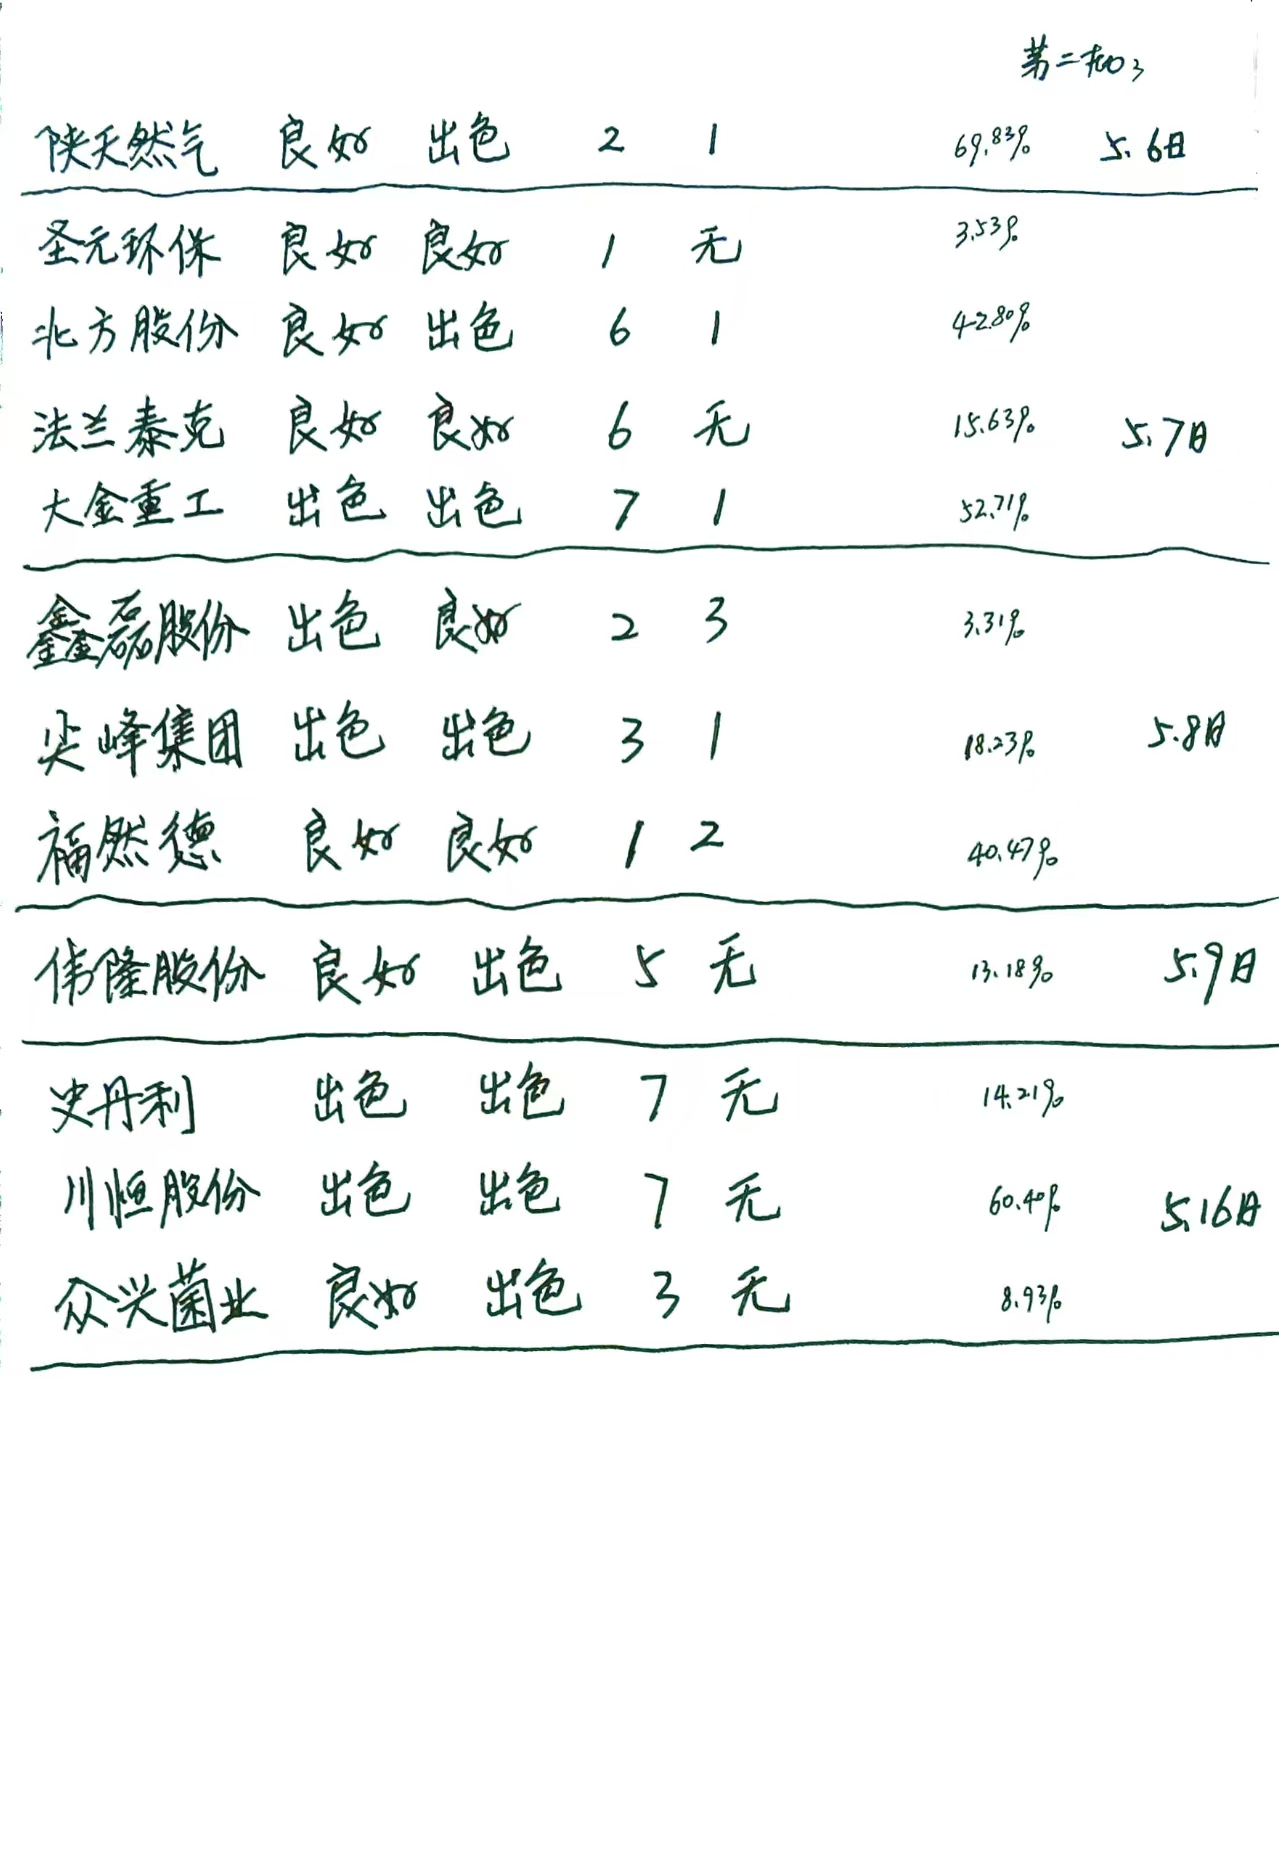 第二批03
陕天然气 良好 出色 2 1 69.83% 5.6日
圣元环保 良好 良好 1 无 3.53%
北方股份 良好 出色 6 1 42.80%
法兰泰克 良好 良好 6 无 15.63% 5.7日
大金重工 出色 出色 7 1 52.71%
鑫磊股份 出色 良好 2 3 3.31%
尖峰集团 出色 出色 3 1 18.23% 5.8日
福然德 良好 良好 1 2 40.47%
伟隆股份 良好 出色 5 无 13.18% 5.9日
史丹利 出色 出色 7 无 14.21%
川恒股份 出色 出色 7 无 60.40% 5.16日
众兴菌业 良好 出色 3 无 8.93%